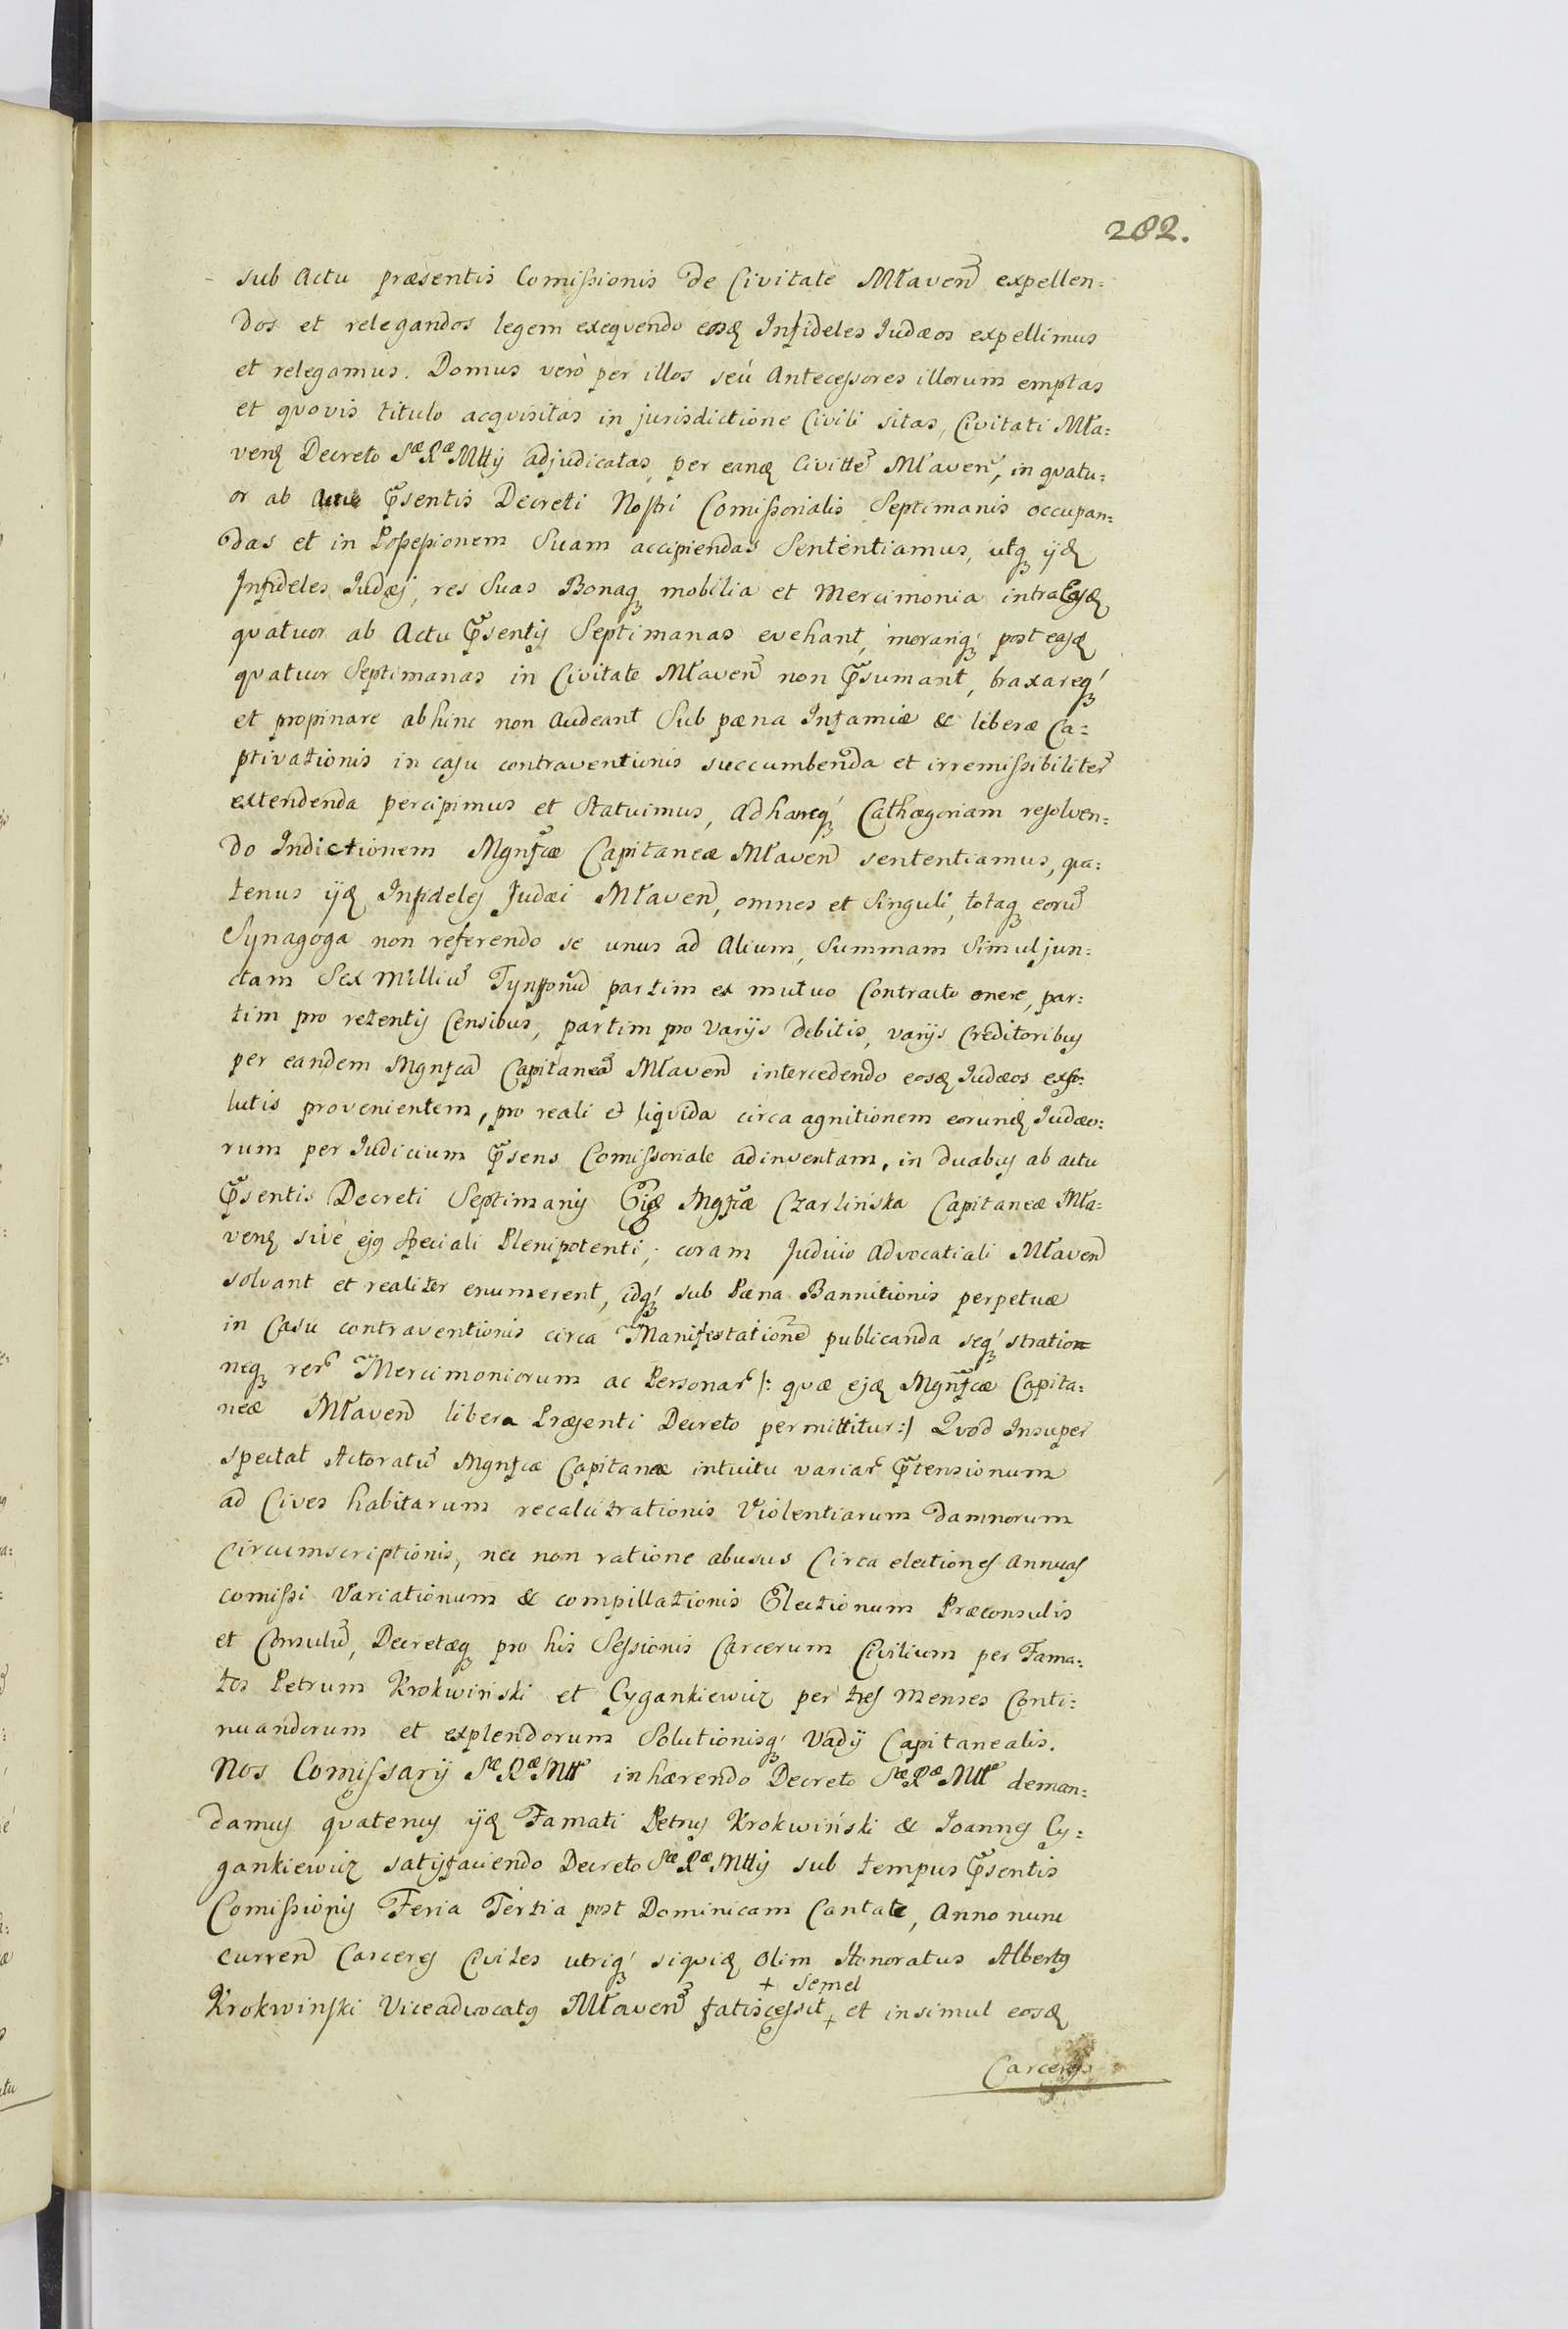 282.
sub Actu præsentis Comißionis de Civitate Młaven expellen=
dos et relegandos legem exeqvendo eosq Infideles Iudæos expellimus
et relegamus. Domus verò per illos seú Antecessores illorum emptas
et qvovis titulo acqvisitas in jurisdictione Civili sitas, Civitati Mła=
venq Decreto Sæ Ræ Mttij adjudicatas per eanq Civitte Młaven, in qvatu=
or ab Actu Prsentis Decreti Nostri Comißorialis Septimanis occupan=
das et in Poßeßionem Suam accipiendas Sententiamus, utq ijq
Infideles Iudæj, res Suas Bonaq mobilia et Mercimonia intra Easq
qvatuor ab Actu Prsentis Septimanas evehant, moranq post easq
qvatuor Septimanas in Civitate Młaven non Prsumant, braxareq
et propinare abhinc non Audeant Sub pæna Infamiæ & liberæ Ca=
ptivationis in casu contraventionis succumbenda et irremißibiliter
extendenda percipimus et Statuimus, Adhancq Cathegoriam resolven=
do Indictionem Mgnfcæ Capitaneæ Młaven sententiamus, qva=
tenus ijq Infideles Judæi Młaven, omnes et Singuli, totaq eoru
Synagoga non referendo se unus ad Alium, Summam Simul jun=
ctam Sex Milliu Tynfonu partim ex mutuo Contracto onere, par=
tim pro retentis Censibus, partim pro Varijs debitis, varijs Creditoribus
per eandem Mgnfca Capitanea Młaven intercedendo eosq Iudæos exso=
lutis provenientem, pro reali et liqvida circa agnitionem eorunq Iudæo=
rum per Iudicium Prsens Comißoriale adinventam, in duabus ab actu
Prsentis Decreti Septimanis Mgfcæ Czarlińska Capitaneæ Mła=
venq sivé ejus Speciali Plenipotenti, coram Judicio Advocatiali Młaven
solvant et realiter enumerent, idq sub Pæna Bannitionis perpetuæ
in Casu contraventionis circa Manifestatione publicanda seq stration
neq rer Mercimoniorum ac Personar /: qvæ ejq Mgnfcæ Capita=
neæ Młaven libera Præsenti Decreto permittitur :/ Qvod Insuper
spectat Actoratu Mgnfcæ Capitaneæ intuitu variar Prtensionum
ad Cives habitarum recalcitrationis Violentiarum damnorum
Circumscriptionis, nec non ratione abusus Circa electiones Annuas
comißi Variationum & compillationis Electionum Præconsulis
et Consulu, Decretæq pro his Seßionis Carcerum Civilium per Fama=
tos Petrum Krokwiński et Cygankiewicz per tres Menses Conti=
nuandorum et explendorum Solutionisq Vadij Capitanealis.
Nos Comißarij Sæ Ræ Mtt inhærendo Decreto Sæ Ræ Mtt deman=
damus qvatenus ijq Famati Petrus Krokwiński & Joannes Cy=
gankiewicz satisfaciendo Decreto Sæ Ræ Mttij sub tempus Prsentis
Comißionis Feria Tertia post Dominicam Cantate, Anno nunc
Curren Carceres Civiles utriq siqviq Olim Honoratus Albertus
+ Semel
Krokwinski Viceadvocatus Młaven fatiscessit + et insimul eosq
Carceres